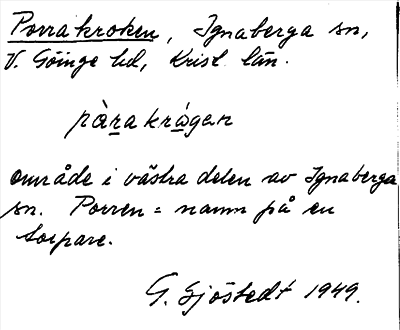 Porrakroken, Ignaberga sn,
V. Göinge hd, Krist. län.
pàrakrågan
område i västra delen av Ignaberga
sn. Porren = namn på en
torpare.
G. Sjöstedt 1949.